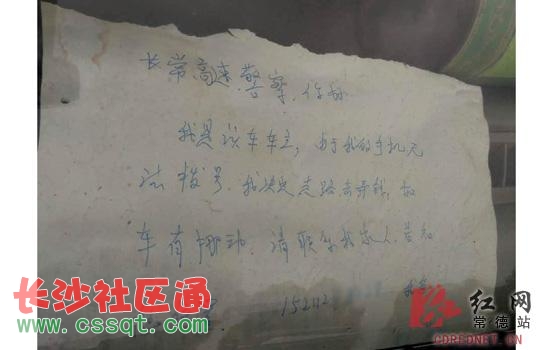 长常高速.警察.你好
我是该车车主,由于我的手机无
法拨号.我决定走路去
车有挪动.请联系我家人.告知
15202
长沙社区通
www.cssqt.com
红网
常德站
CDREDNET.CN